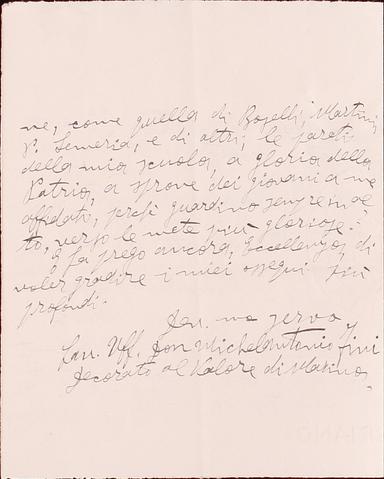 ne, come quella di Boselli, Martini,
P. Semeria, e di altri, le pareti
della mia scuola, a gloria della
Patria, a sprone dei giovani a me
affidati, perchè guardino sempre in al
to, verso le mete più gloriose.
E La prego ancora, Eccellenza, di
voler gradire i miei ossequi più
profondi.
Dev. mo servo
Cav. Uff. Don Michelantonio Fini
decorato al Valore di Marina